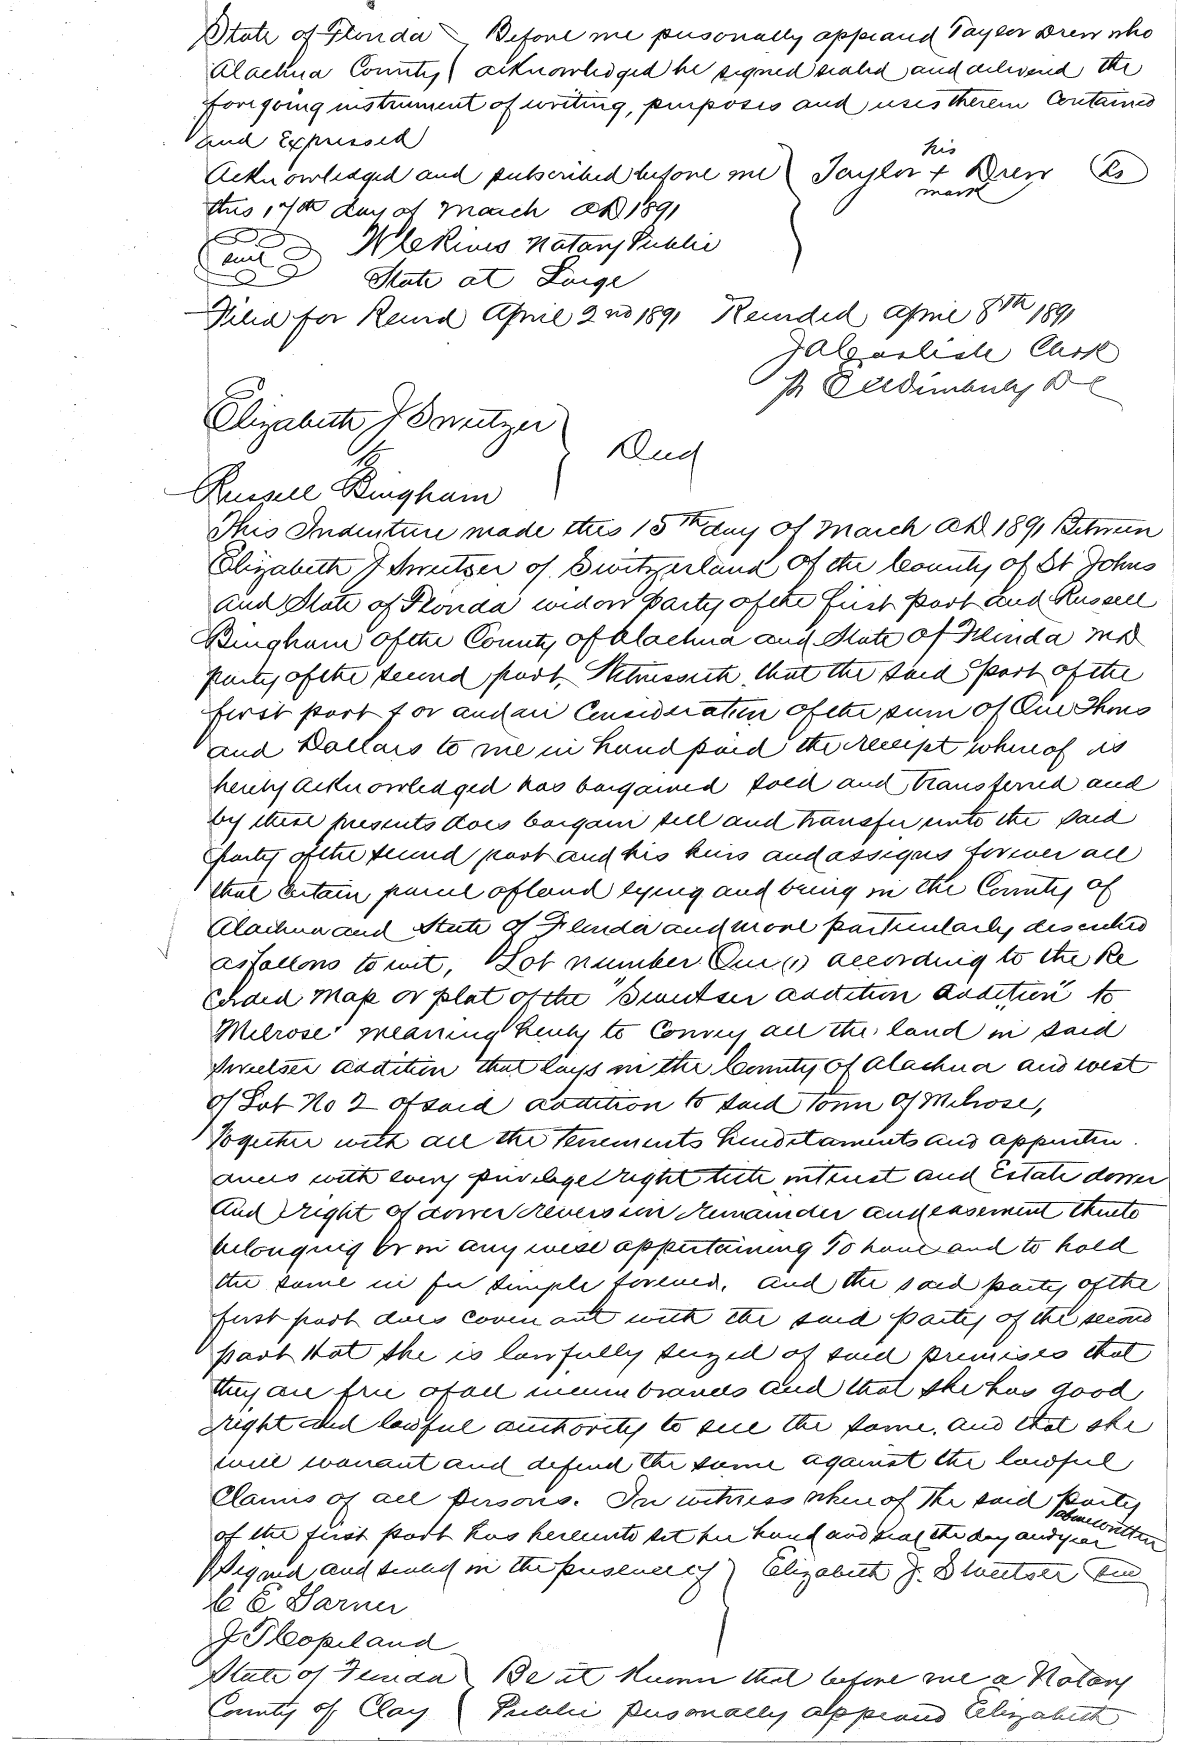 State of Florida } Before me personally appeared Taylor Drew who
Alachua County } acknowledged he signed sealed and delivered the
foregoing instrument of writing, purposes and uses therein Contained
and Expressed
his
Acknowledged and subscribed before me } Taylor + Drew Ls
mark
this 17th day of March AD 1891
Seal W C Rives Notary Public
State at Large
Filed for Record April 2nd 1891 Recorded April 8th 1891
J A Carlisle Clerk
pr DC
Elizabeth J Sweetzer
to } Deed
Russell Bingham
This Indenture made this 15th day of March AD. 1891 Between
Elizabeth J Sweetser of Switzerland of the County of St Johns
and State of Florida widow party of the first part and Russell
Bingham of the County of Alachua and State of Florida MD
party of the second part, Witnesseth, that the said part of the
first part for and in Consideration of the sum of One Thous
and Dollars to me in hand paid the receipt whereof is
hereby acknowledged has bargained sold and transferred and
by these presents does bargain sell and transfer unto the said
party of the second part and his heirs and assigns forever all
that certain parcel of land lying and being in the County of
Alachua and State of Florida and more particularly described
as follows to wit, Lot number One (1) according to the Re
corded Map or plat of the "Sweetser addition addition" to
Melrose" meaning hereby to Convey all the land in said
Sweetser addition that lays in the County of Alachua and west
of Lot No 2 of said addition to said Town of Melrose,
Together with all the tenements hereditaments and appurten
ances with every privilege right title interest and Estate dower
and right of dower reversion remainder and easement thereto
belonging or in any wise appertaining To have and to hold
the same in fee simple forever. and the said party of the
first part does covenant with the said party of the second
part that she is lawfully seized of said premises that
they are free of all incumbrances and that she has good
right and lawful authority to sell the same, and that she
will warrant and defend the same against the lawful
Claims of all persons. In witness whereof the said party
of the first part has hereunto set her hand and seal the day and year above written
Signed and sealed in the presence of } Elizabeth J. Sweetser Seal
C E Garner
J T Copeland
State of Florida } Be it Known that before me a Notary
County of Clay } Public personally appeared Elizabeth